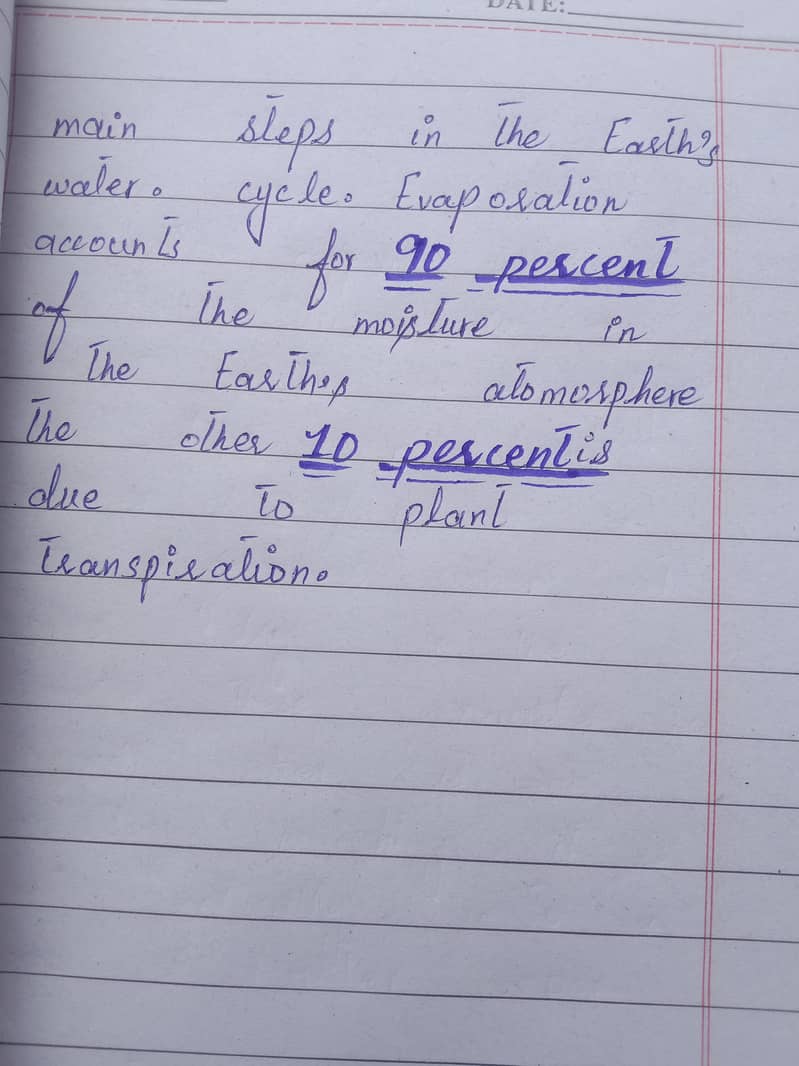 DATE:
main steps in the Earth's
water. cycle. Evaporation
accounts for 90 percent
of the moisture in
the Earth's atomosphere
the other 10 percent is
due to plant
transpiration.